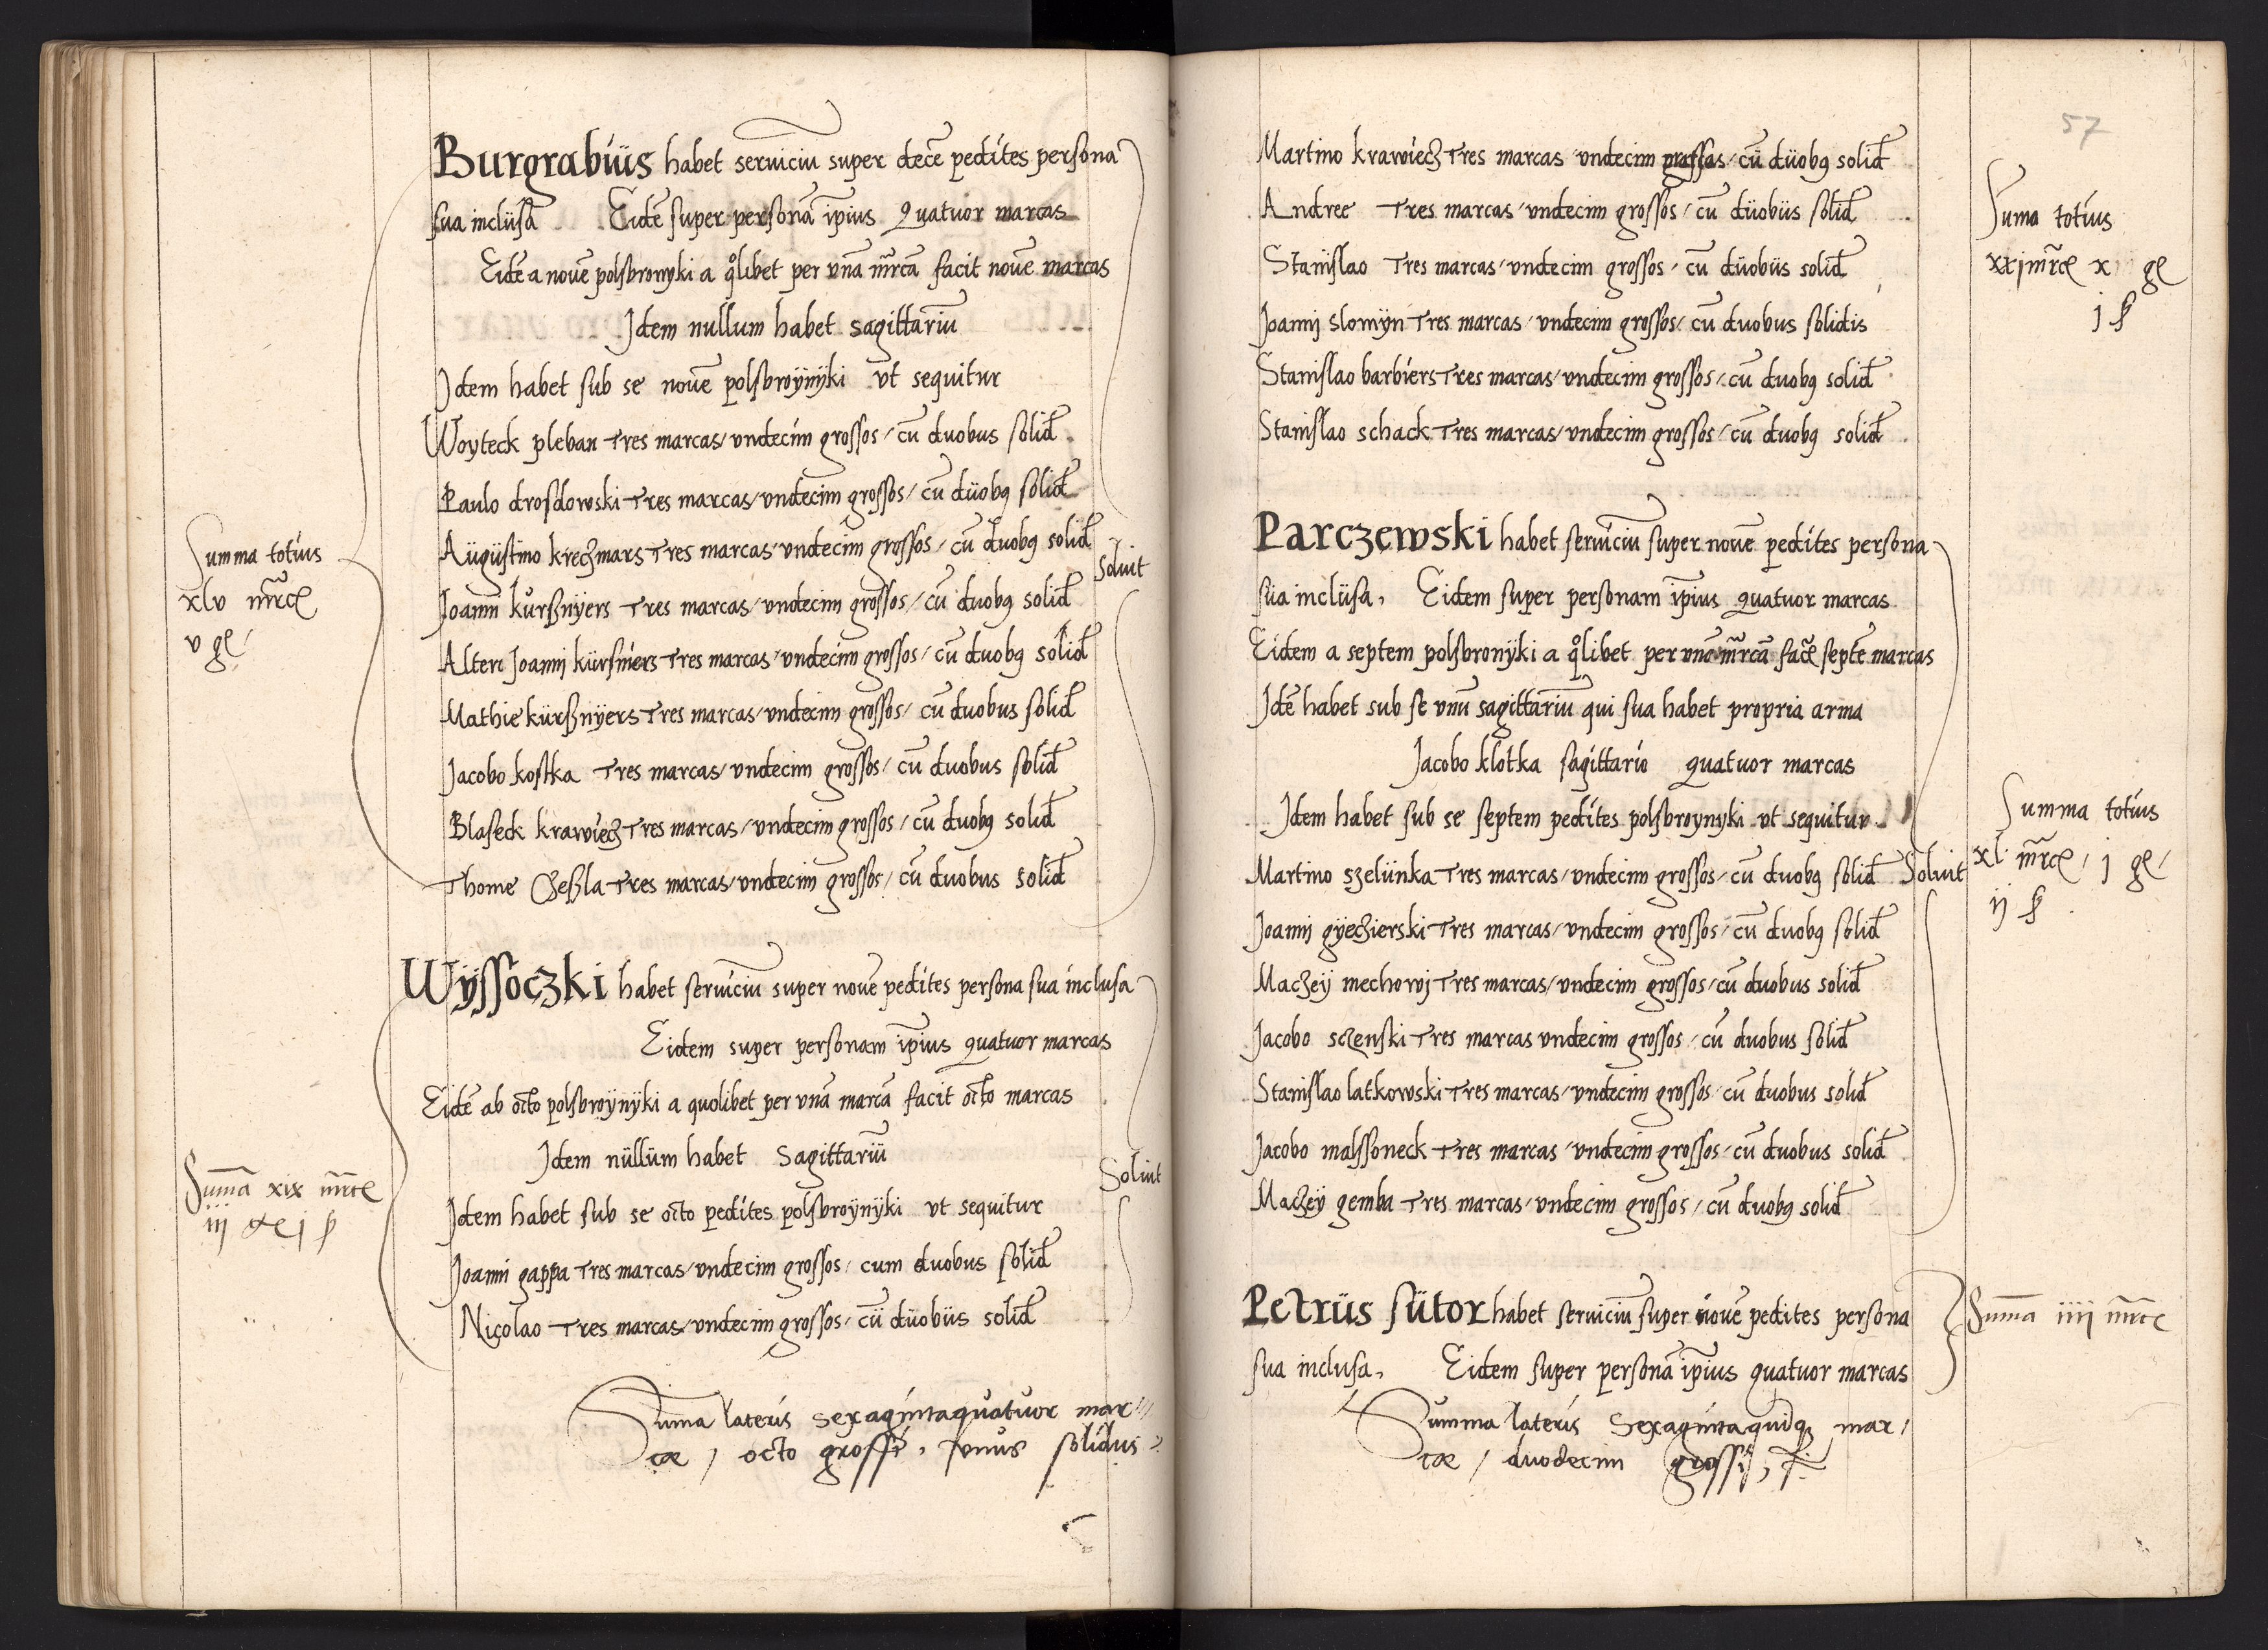 Burgrabiüs habet seruiciū super decē pedites persona
sua inclüsa Eidē super personā ip̄ius Quatuor marcas
Eidē a nouē polsbronyki a qͦlibet per vnā mr̄cā facit nouē marcas
Idem nullum habet sagittariū
Idem habet sub se nouē polsbroÿnÿki vt sequitur
Woyteck pleban Tres marcas/vndecim grossos/cū duobus solid
Paulo drosdowski Tres marcas/vndecim grossos/cū düobꝰ solid
Aügüstino kreczmars Tres marcas/vndecim grossos/cū duobꝰ solid
Soluit
Summa totius
xlv mr̄c
v g
Joanni kürßnÿers Tres marcas/vndecim grossos/cū duobꝰ solid
Alteri Joanni kürsners Tres marcas/vndecim grossos/cū duobꝰ solid
Mathie kürßnÿers Tres marcas/vndecim grossos/cū duobus solid
Jacobo kostka Tres marcas/vndecim grossos/cū duobus solid
Blaseck krawiecz Tres marcas/vndecim grossos/cū duobꝰ solid
Thome Czeßla Tres marcas/vndecim grossos/cū duobus solid
Wÿssoczki habet seruiciū super nouē pedites persona sua inclusa
Eidem super personam ip̄ius quatuor marcas
Eidē ab octo polsbroÿnÿki a quolibet per vnā marcā facit octo marcas
Idem nüllüm habet Sagittariū
Soluit
Sum̄a xix mr̄c
iij g j
Idem habet sub se octo pedites polsbroÿnÿki vt sequitur
Joanni gappa Tres marcas/vndecim grossos/cum duobus solid
Nicolao Tres marcas/vndecim grossos/cū düobüs solid
Summa lateris sexagintaquatuor mar//
cæ / octo grossi, vnus solidus
57
Martino krawiecz Tres marcas vndecim grossos/cū düobꝰ solid
Andree Tres marcas/vndecim grossos/cū düobüs solid
Stanislao Tres marcas/vndecim grossos/cū düobüs solid
Suma totius
xxj mr̄c x g
j
Joanni slomÿn Tres marcas/vndecim grossos/cū duobus solidis
Stanislao barbiers Tres marcas/vndecim grossos/cū duobꝰ solid
Stanislao schack Tres marcas/vndecim grossos/cū duobꝰ solid
Parczewski habet seruiciū super nouē pedites persona
süa inclüsa, Eidem super personam ip̄ius quatuor marcas
Eidem a septem polsbronÿki a qͦlibet per vnā mr̄cā fac̄ septē marcas
Idē habet sub se vnū sagittariū qui sua habet propria arma
Jacobo klotka sagittario quatuor marcas
Idem habet sub se septem pedites polsbroynyki vt sequitur
Martino szelünka Tres marcas/vndecim grossos/cū duobꝰ solid Soluit
Summa totius
xl mr̄c/ j g/
ij
Joanni gÿeczierski Tres marcas/vndecim grossos/cū duobꝰ solid
Maczeÿ mechowj Tres marcas/vndecim grossos/cū duobus solid
Jacobo sczenski Tres marcas vndecim grossos/cū duobus solid
Stanislao latkowski Tres marcas/vndecim grossos/cū duobus solid
Jacobo malssoneck Tres marcas/vndecim grossos/cū duobus solid
Maczeÿ gemba Tres marcas/vndecim grossos/cū duobꝰ solid
Petrüs sütor habet seruiciū super nouē pedites persona
sua inclusa, Eidem super personā ip̄ius quatuor marcas
Sum̄a iiij mr̄c
Summa lateris sexagintaquinqꝫ mar/
cæ / duodecim grossi,